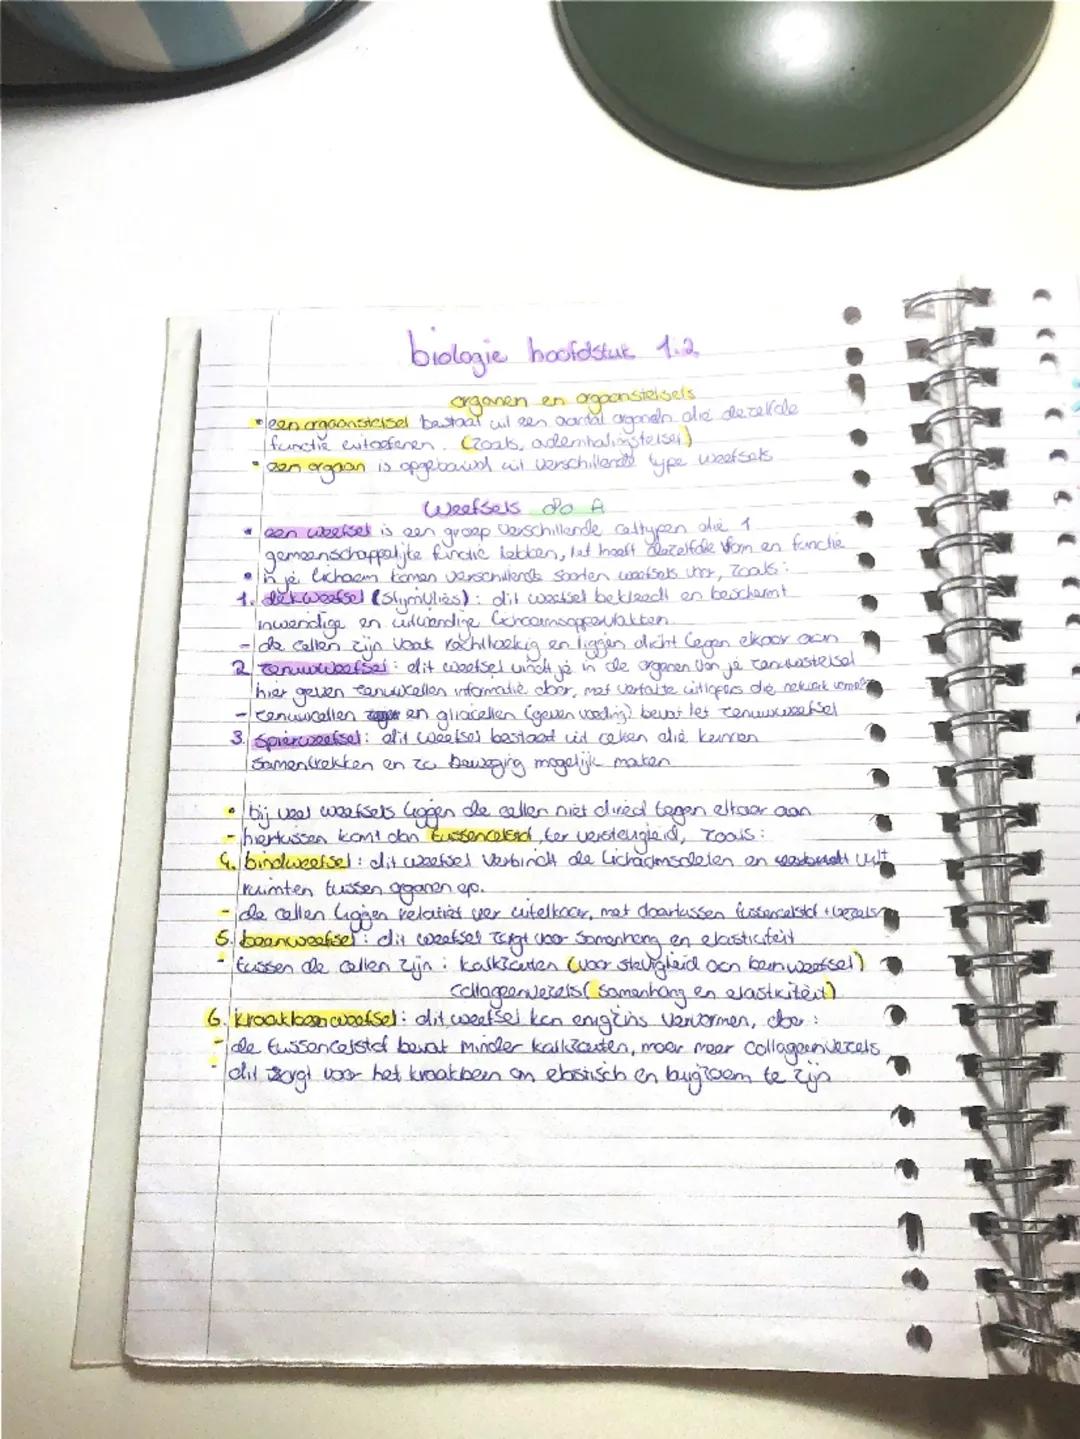 biologie hoofdstuk 1.2
organen en orgaanstelsels
• een orgaanstelsel bestaat uit een aantal organen die dezelfde
functie uitoefenen. (zoals, ademhalingstelsel)
• een orgaan is opgebouwd uit verschillende type weefsels
Weefsels
• een weefsel is een groep verschillende celtypen die 1
gemeenschappelijke functie hebben, het heeft dezelfde vorm en functie
• in je lichaam komen verschillende soorten weefsels voor, zoals:
1. dekweefsel : dit weefsel bekleedt en beschermt
inwendige en uitwendige lichaamsoppervlakten.
- de cellen zijn vaak rechthoekig en liggen dicht tegen elkaar aan
2. zenuwweefsel: dit weefsel vindt je in de organen van je zenuwstelsel
hier geven zenuwcellen informatie door, met vertakte uitlopers die netwerk
- zenuwcellen en gliacellen (geven voeding) bevat het zenuwweefsel
3. spierweefsel: dit weefsel bestaat uit cellen die kunnen
samentrekken en zo beweging mogelijk maken
• bij veel weefsels liggen de cellen niet direct tegen elkaar aan
- hiertussen komt dan tussencelstof, ter versteviging, zoals:
4. bindweefsel: dit weefsel verbindt de lichaamsdelen en vult
ruimten tussen organen op.
- de cellen liggen relatief ver uitelkaar, met daartussen tussencelstof + vezels
5. beenweefsel: dit weefsel zorgt voor samenhang en elasticiteit
- tussen de cellen zijn: kalkzouten (voor stevigheid aan beenweefsel)
collageenvezels (samenhang en elasticiteit)
6. kraakbeenweefsel: dit weefsel kan enigzins vervormen, door:
- de tussencelstof bevat minder kalkzouten, maar meer collageenvezels
- dit zorgt voor het kraakbeen om elastisch en buigzaam te zijn